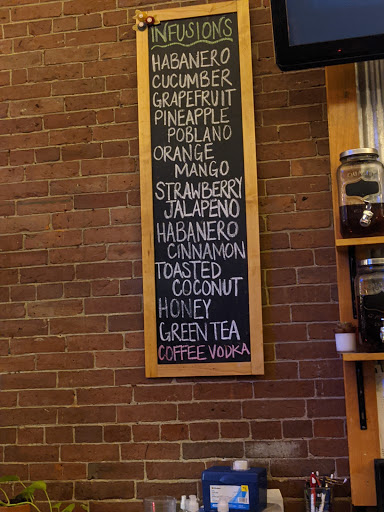 INFUSIONS
HABANERO
CUCUMBER
GRAPEFRUIT
PINEAPPLE
POBLANO
ORANGE
MANGO
STRAWBERRY
JALAPEÑO
HABANERO
CINNAMON
TOASTED
COCONUT
HONEY
GREEN TEA
COFFEE VODKA